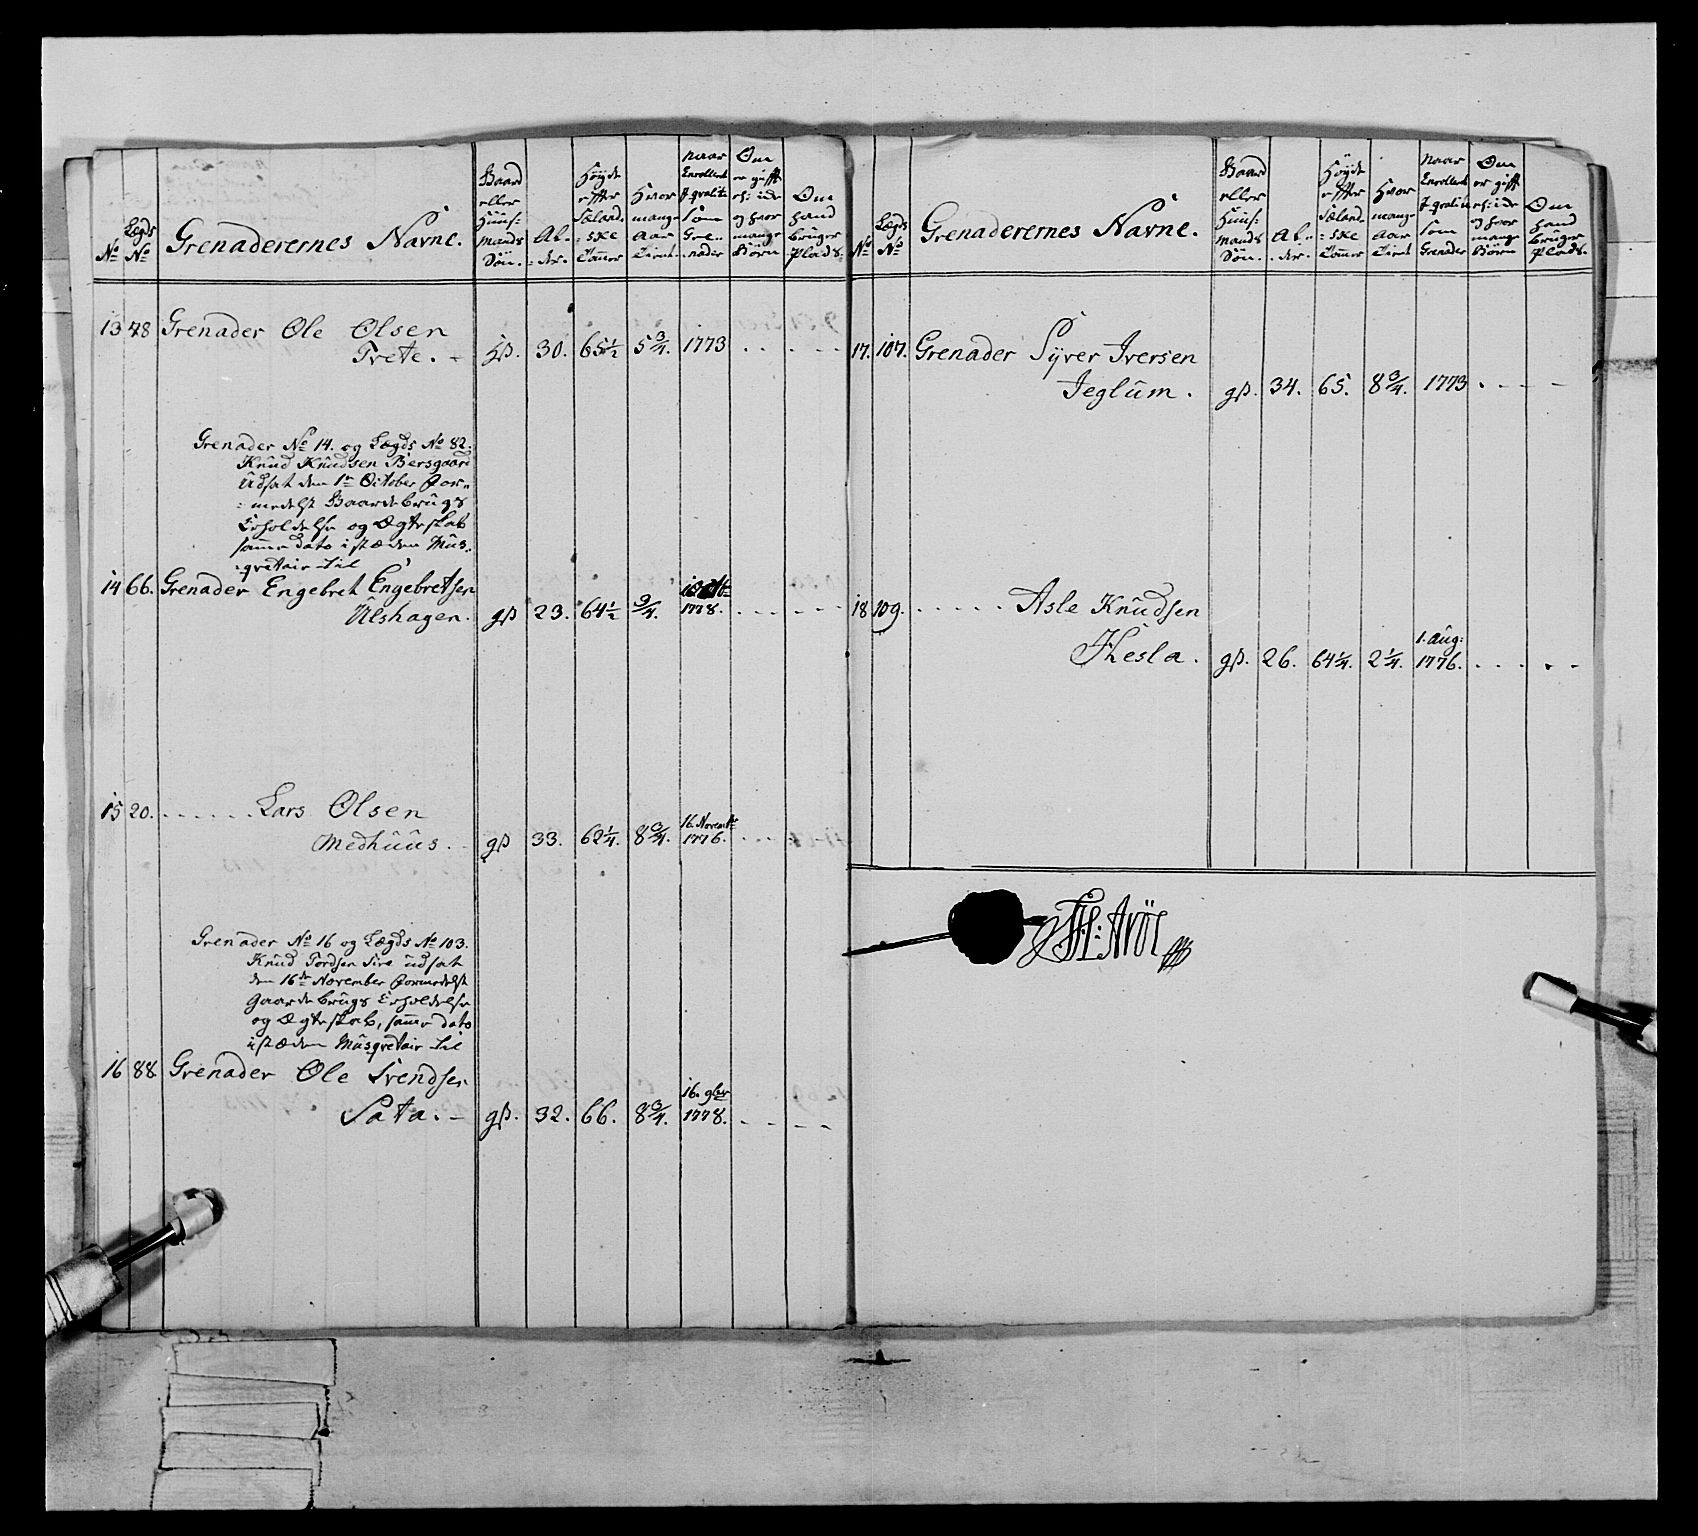 No
Lægds No
Grenaderernes Navne.
Gaard eller Huus: mands Søn.
Al- :der.
Høyde efter Siæland- :ske Tomer
Hvor mange Aar Tient.
naar Enrollert J qvalite som Gre- nader
Om er gift eh: ide og hvor mange Børn
Om hand bruger Plads:
13 48 Grenader Ole Olsen
Trete. - hß. 30. 65½ 5¾. 1773 . . . - -
Grenader No 14. og Lægds No 82.
Knud Knudsen Bersgaard
Udsat den 1te October for-
:medelst Gaardebrugs
Erholdelse og Ægteskab
samme dato istæden Mus-
:qvetair til
14 66. Grenader Engebret Engebretsen
Ulshagen. gß 23. 64½ ¾. 1778. . - - - - -
15 20. . . . . . . Lars Olsen
Medhuus. - gß 33. 62¼. 8¾. 16. Novembr 1776. . . . .
Grenader No 16 og Lægds No 103.
Knud Tordsen Sire udsat
den 16de November formedelst
Gaardebrugs Erholdelse
og Ægteskab, samme dato
istæden Musqvetair til
16 88 Grenader Ole Svendsen
Sata. - gß. 32. 66. 8¾. 16. 9br 1778. . . . - -
No
Lægds No
Grenaderernes Navne.
Gaard eller Huus: mands Søn.
Al- . der.
Høyde efter Siæland- :ske Tomer
Hvor mange Aar Tient
naar Enrollert J qvalite som Grenader
Om er gift eh: ide og hvor mange Børn
Om hand bruger Plads.
17. 107. Grenader Syver Iversen
Jeglum. gß. 34. 65. 8¾. 1773 . - - -
18 109. . . . . . Asle Knudsen
Thesla. gß. 26. 64¼. 2¼. 1. Aug: 1776. . . . . -